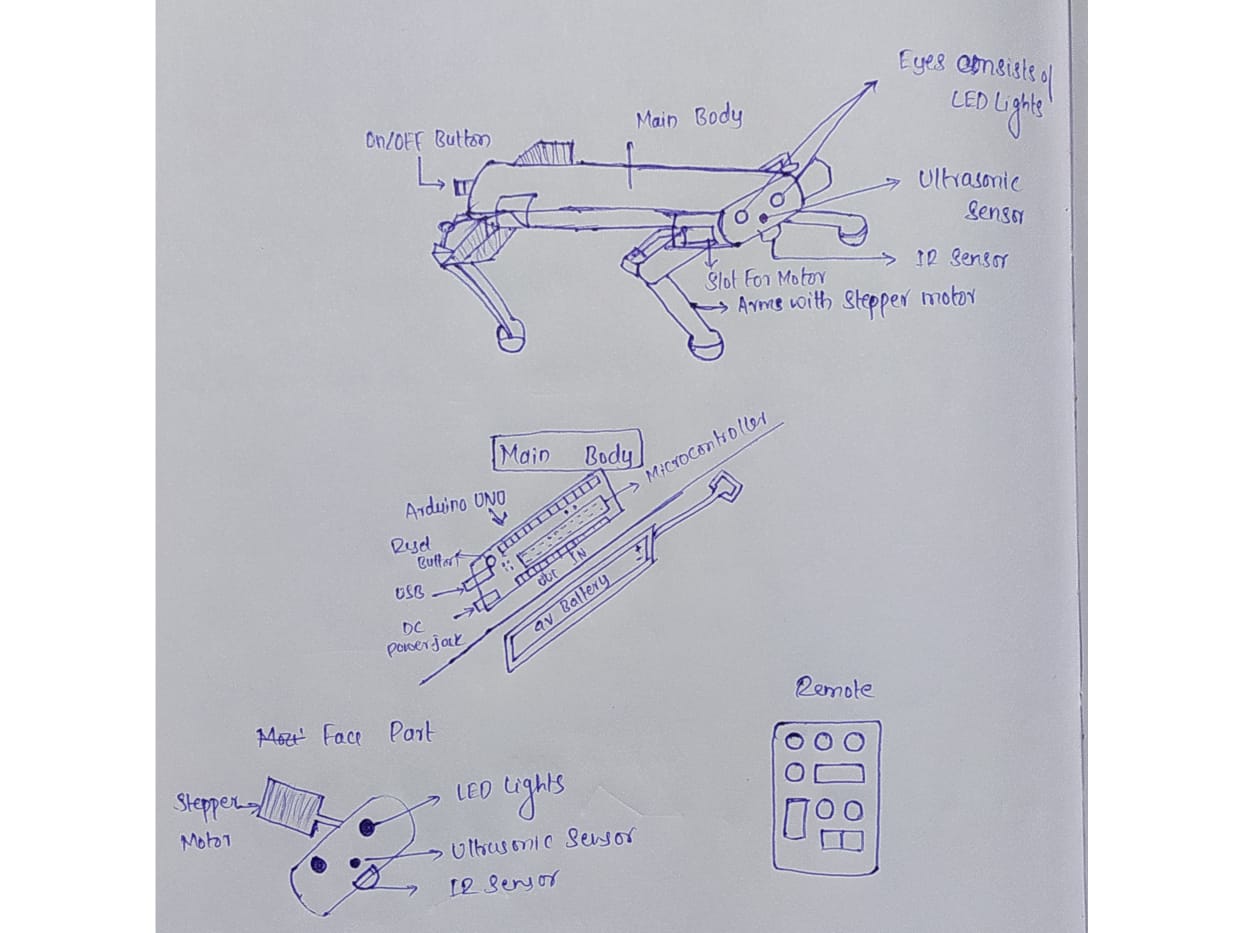 Eyes consists of
LED Lights
Main Body
On/OFF Button
Ultrasonic
Sensor
IR Sensor
Slot For Motor
Arms with Stepper motor
Main Body
Microcontroller
Arduino UNO
Reset
Button
USB
DC
powerjack
IN
9V Battery
+
-
Remote
Face Part
LED Lights
Stepper
Motor
Ultrasonic Sensor
IR Sensor